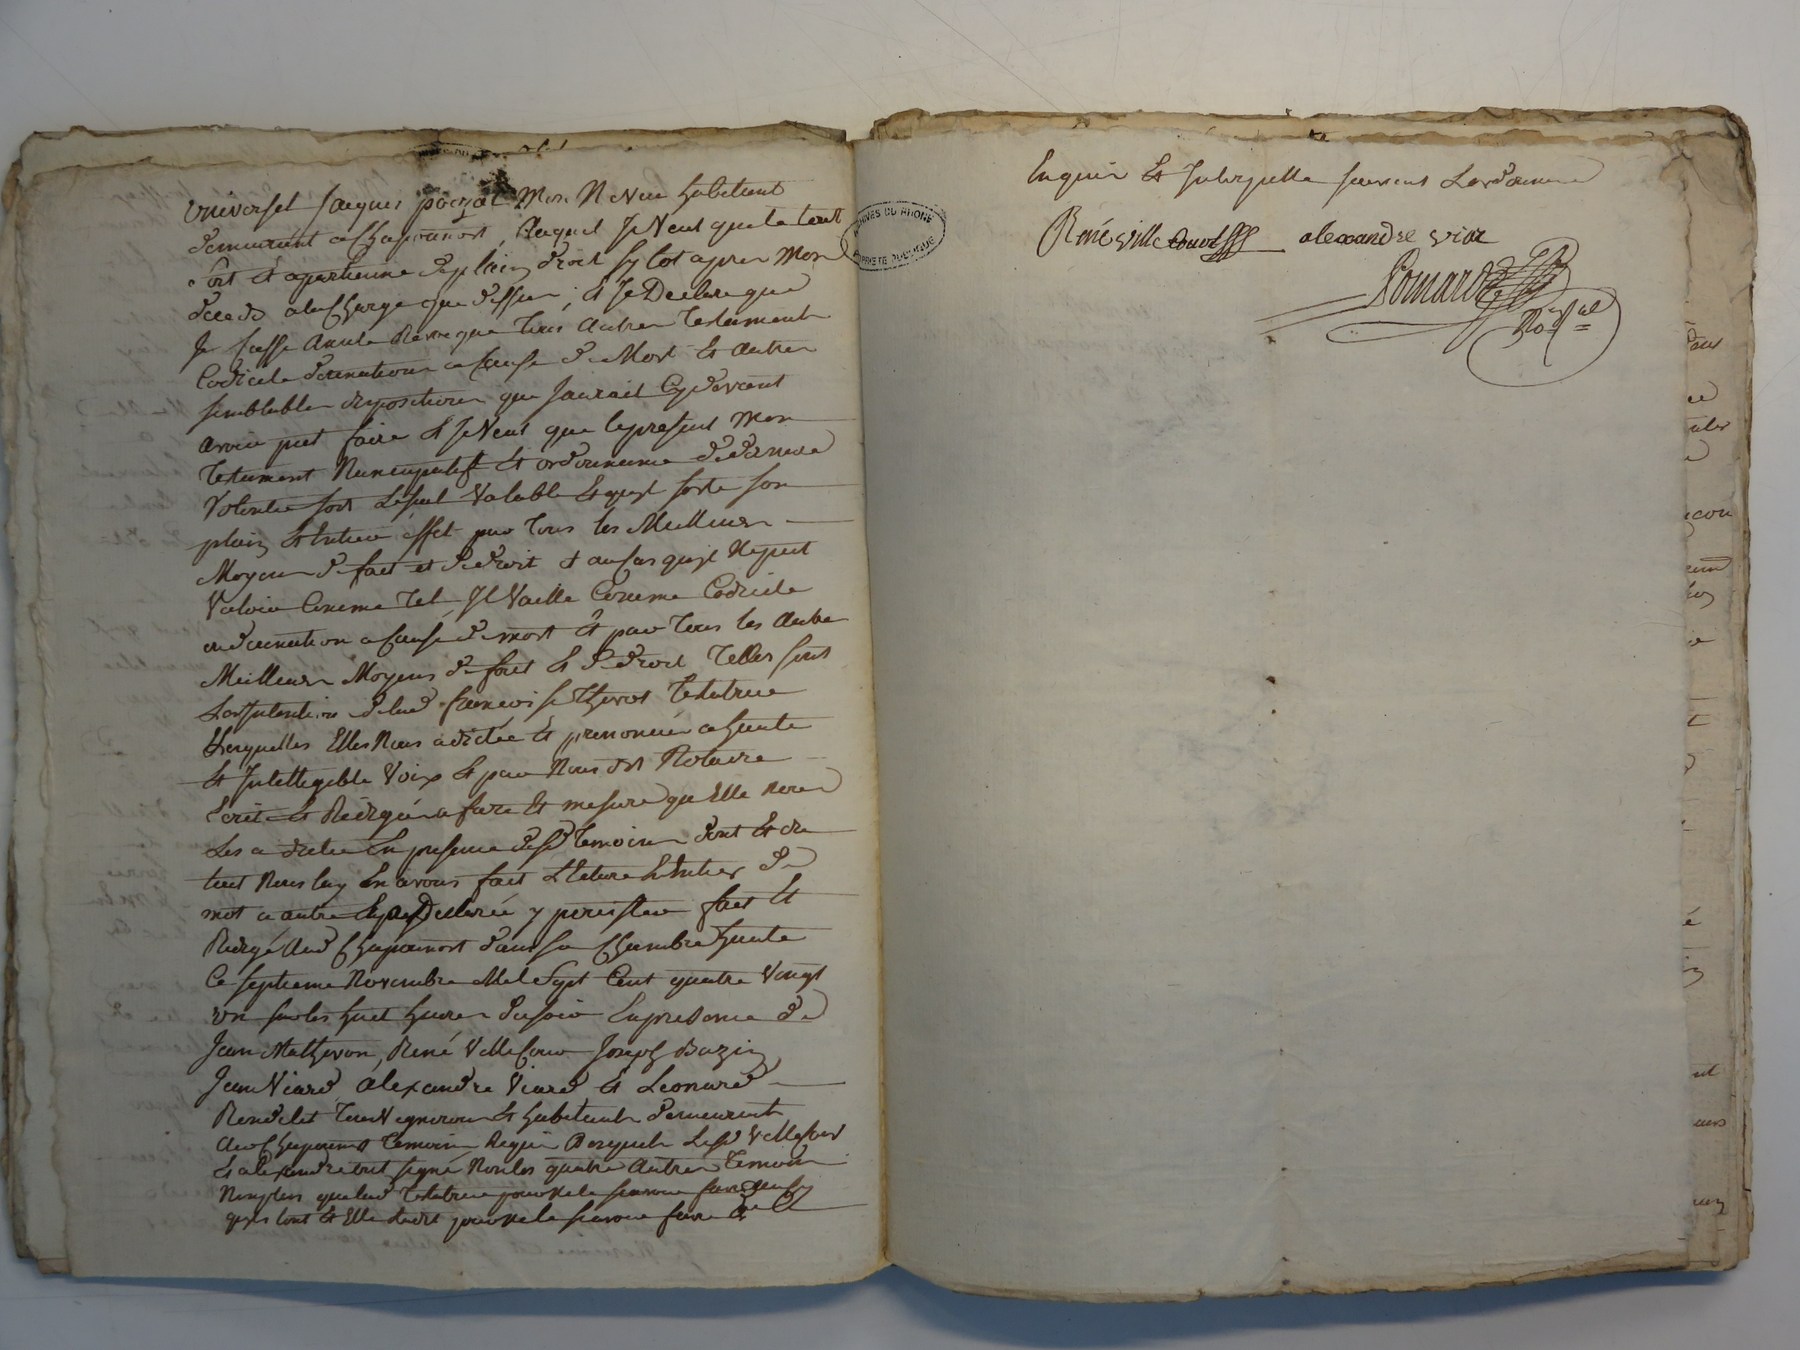 universel Jacques poizat Mon Neveu habitant
demeurant a Chaponnost, Auquel Je Veut que le tout
soit et apartienne de plain droit sy tot apres Mon
deceds a la Charge que dessus, et Je Declare que
Je Casse Anulle Revoque tous Autres Testament
Codicile donnation a Cause de Mort Et Autres
semblables dispositions que J'aurait Cy devant
avoir put faire Et Je Veut que le present Mon
Testament Nuncupatif Et ordonnance de derniere
Volontée soit le seul Valable Et quil sorte son
plain Et Entier effet par Tous les Meilleurs
Moyens de fait et de droit & au Cas quil Ne put
Valoir Comme Tel, Jl Vaille Comme Codicile
ou donnation a Cause de mort Et par Tous les Autres
Meilleurs Moyens de fait Et de droit Telles sont
Les Jntentions de lad. francoise Thevot Testatrice
Lesquelles Elles Nous a dictée Et prononcée a haute
Et Jntelligible Voix Et par Nous dit Notaire
Ecrit Et Redigée a fure Et mesure qu'Elle Nous
Les a dictée En presence desd. Temoins dont Et du
tout Nous luy En avons fait Lecture Entiere de
mot a autre Declarée y persister fait Et
Redigé aud. Chaponnost dans sa Chambre haute
Ce septieme Novembre Mil Sept Cent quatre Vingt
un sur les huit heures du soir En presence de
Jean Mathevon, René Villecour Joseph Bazin
Jean Viard Alexandre Viard Et Leonard
Rendelet Tous Vignerons Et habitants demeurant
aud. Chaponnost Temoins Requis Lesd. Villecour
Et alexandre ont signé Non les quatre Autres Temoins
Non plus que lad. Testatrice pour ne le scavoir faire
qu'ils ont Et Elle a dit pour ne le scavoir faire de ce
Enquis Et Jnterpellé suivant L'ordonnance
René villecourt alexandre viar
Pomard
No. Ral
ARCHIVES DU RHONE
PROPRIETE PUBLIQUE